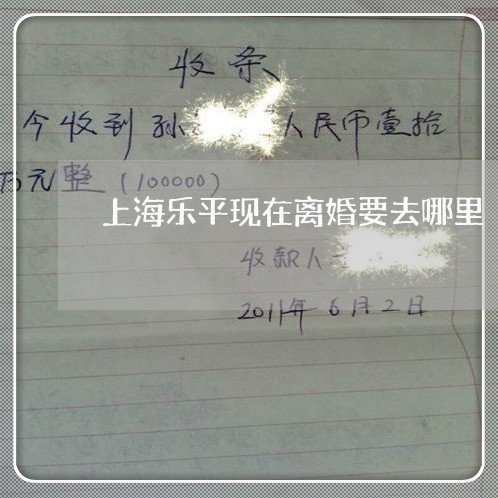 收条
今收到孙 人民币壹拾
万元整(100000)
上海乐平现在离婚要去哪里
收款人
2011年6月2日